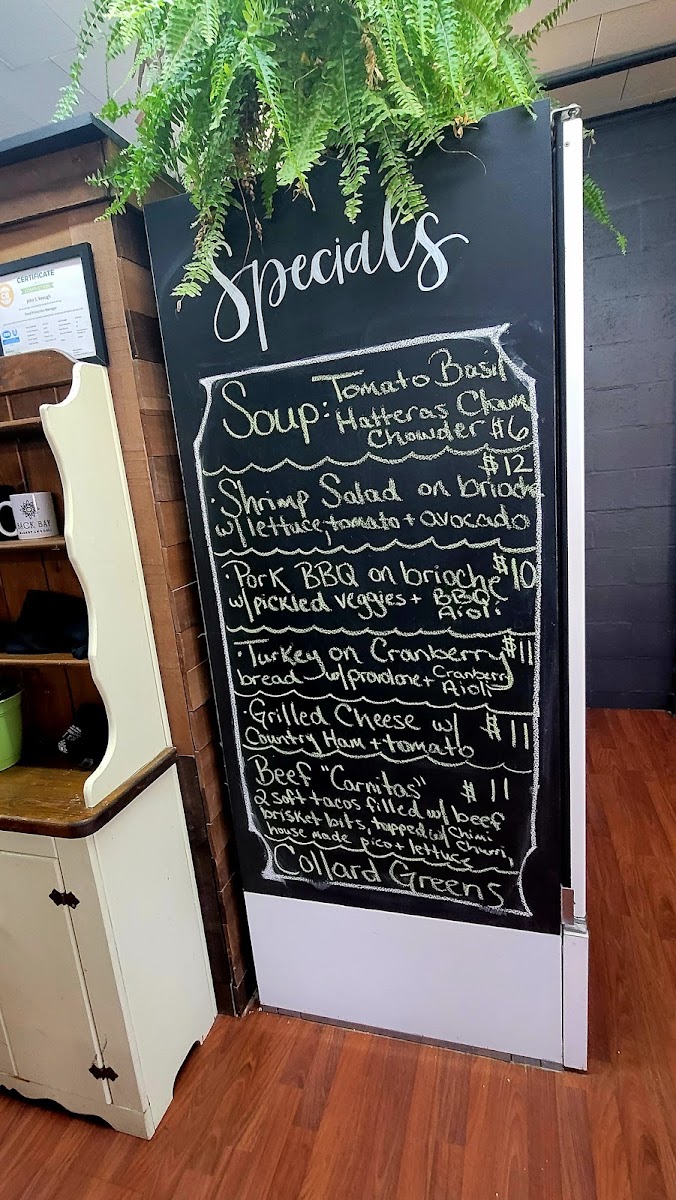 CERTIFICATE
Specials
Soup: Tomato Basil
Hatteras Clam
Chowder $6
$12
· Shrimp Salad on brioche
w/ lettuce, tomato + avocado
· Pork BBQ on brioche $10
w/ pickled veggies + BBQ
Aioli
· Turkey on Cranberry $11
bread w/ provolone + Cranberry
Aioli
· Grilled Cheese w/ $11
Country Ham + tomato
Beef "Carnitas" $11
2 soft tacos filled w/ beef
brisket bits, topped w/ Chimi
Churri,
house made pico + lettuce
Collard Greens
BACK BAY